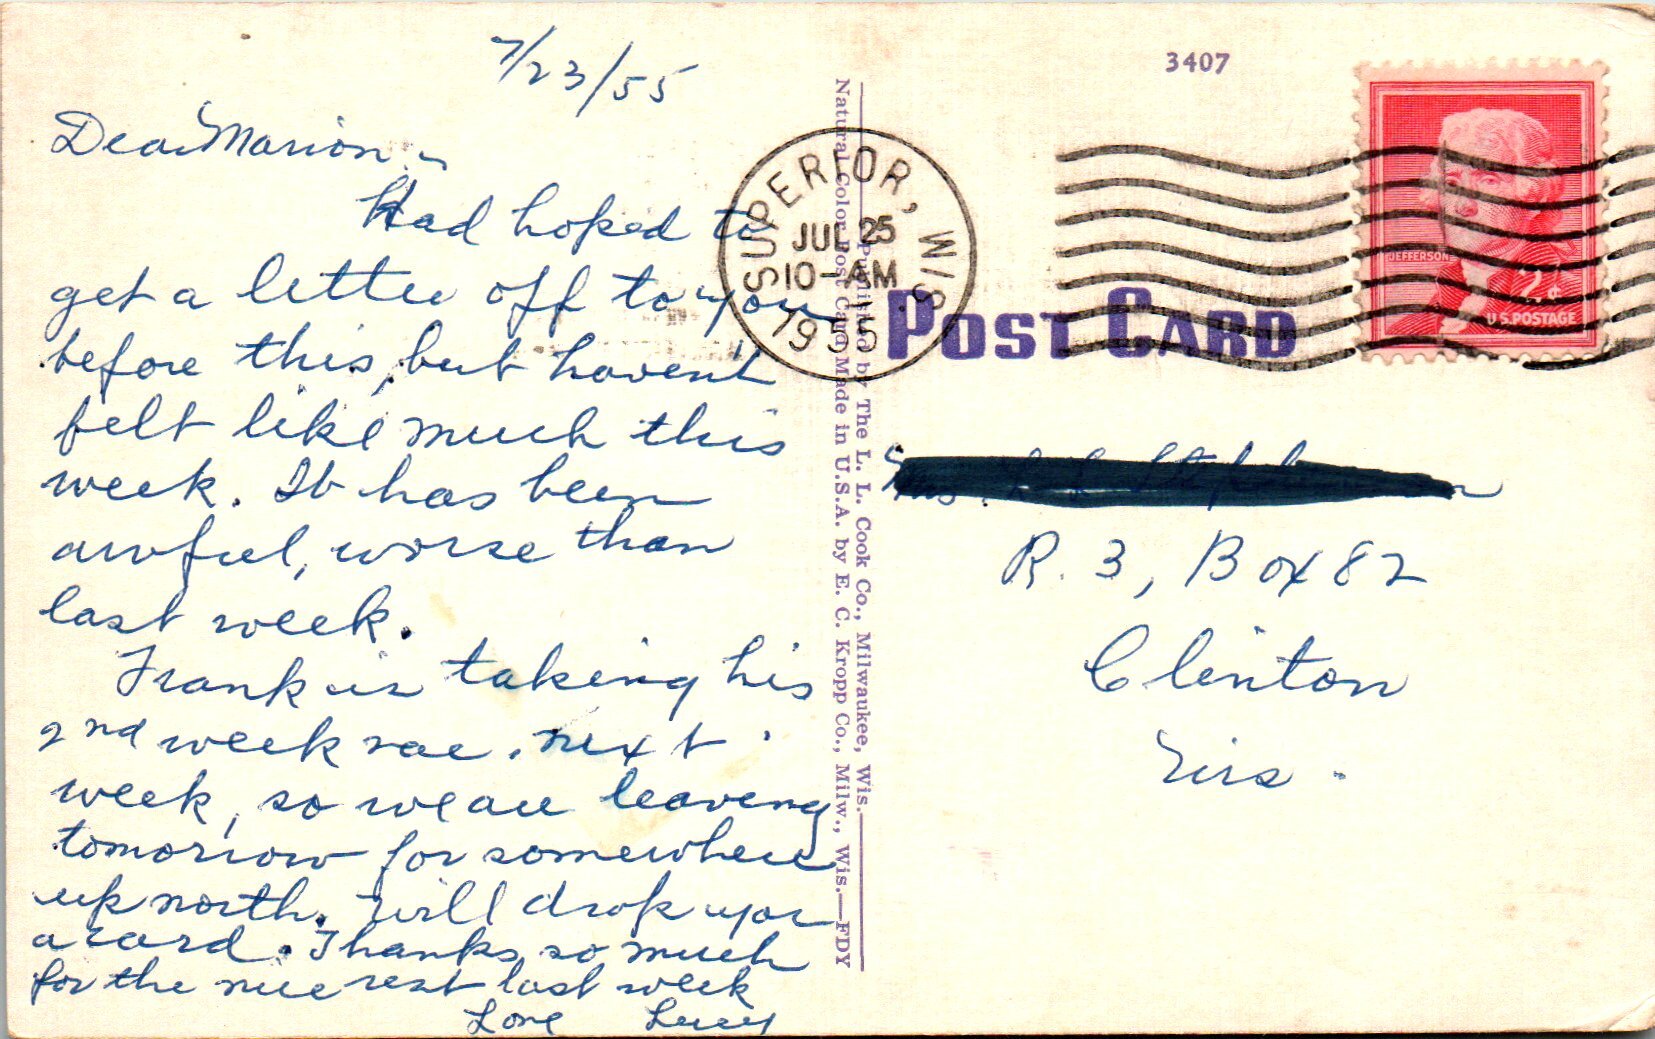 7/23/55
Dear Marion ~
Had hoped to
get a letter off to you
before this, but haven't
felt like much this
week. It has been
awful, worse than
last week.
Frank is taking his
2nd week vac. next
week, so we are leaving
tomorrow for somewhere
up north. Will drop you
a card. Thanks so much
for the nice rest last week
Love Lucy
Natural Color Post Card Made in U.S.A. by E. C. Kropp Co., Milw., Wis.—FDY
Published by The L. L. Cook Co., Milwaukee, Wis.
3407
SUPERIOR, WIS.
JUL 25
10-AM
1955
POST CARD
JEFFERSON
2¢
U.S. POSTAGE
Mrs.
R. 3, Box 82
Clinton
Wis.